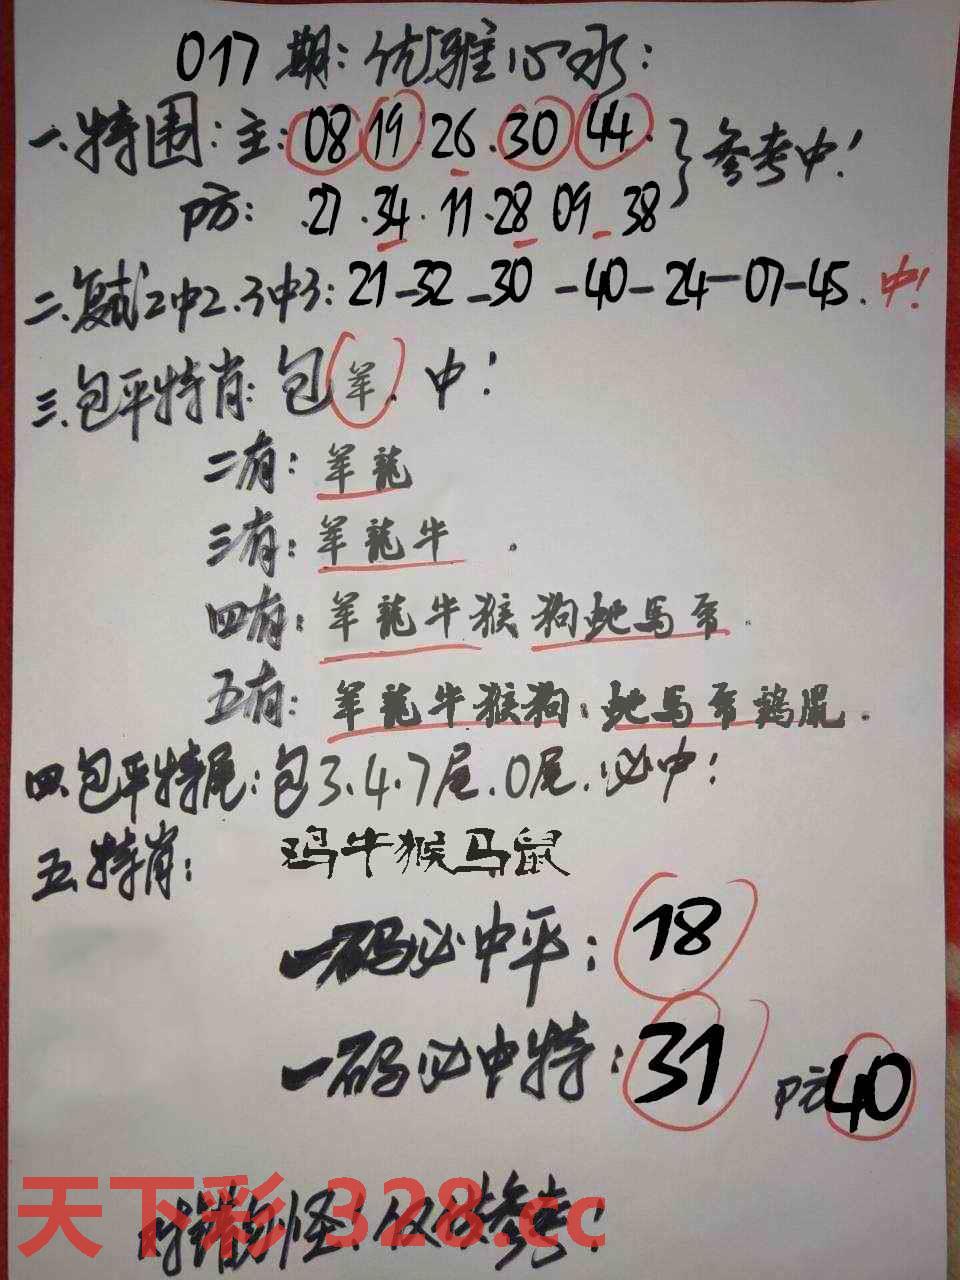 017期:优雅心水:
一.特围:主:08 19 26.30 44.
参考中!
防:.27.34.11.28 09 38
二.复式2中2.3中3:21-32-30-40-24-07-45.中!
三.包平特肖:包羊.中!
二有:羊龍
三有:羊龍牛.
四有:羊龍牛猴狗蛇馬.
五有:羊龍牛猴狗.蛇馬鷄鼠.
四.包平特尾:包3.4.7尾.0尾.必中!
五.特肖:鸡牛猴马鼠
一码必中平:18
一码必中特:31 防40
错勿怪!仅供参考!
天下彩 328.cc